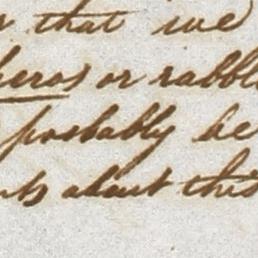 that we
heros or rabbl
probably be
about this